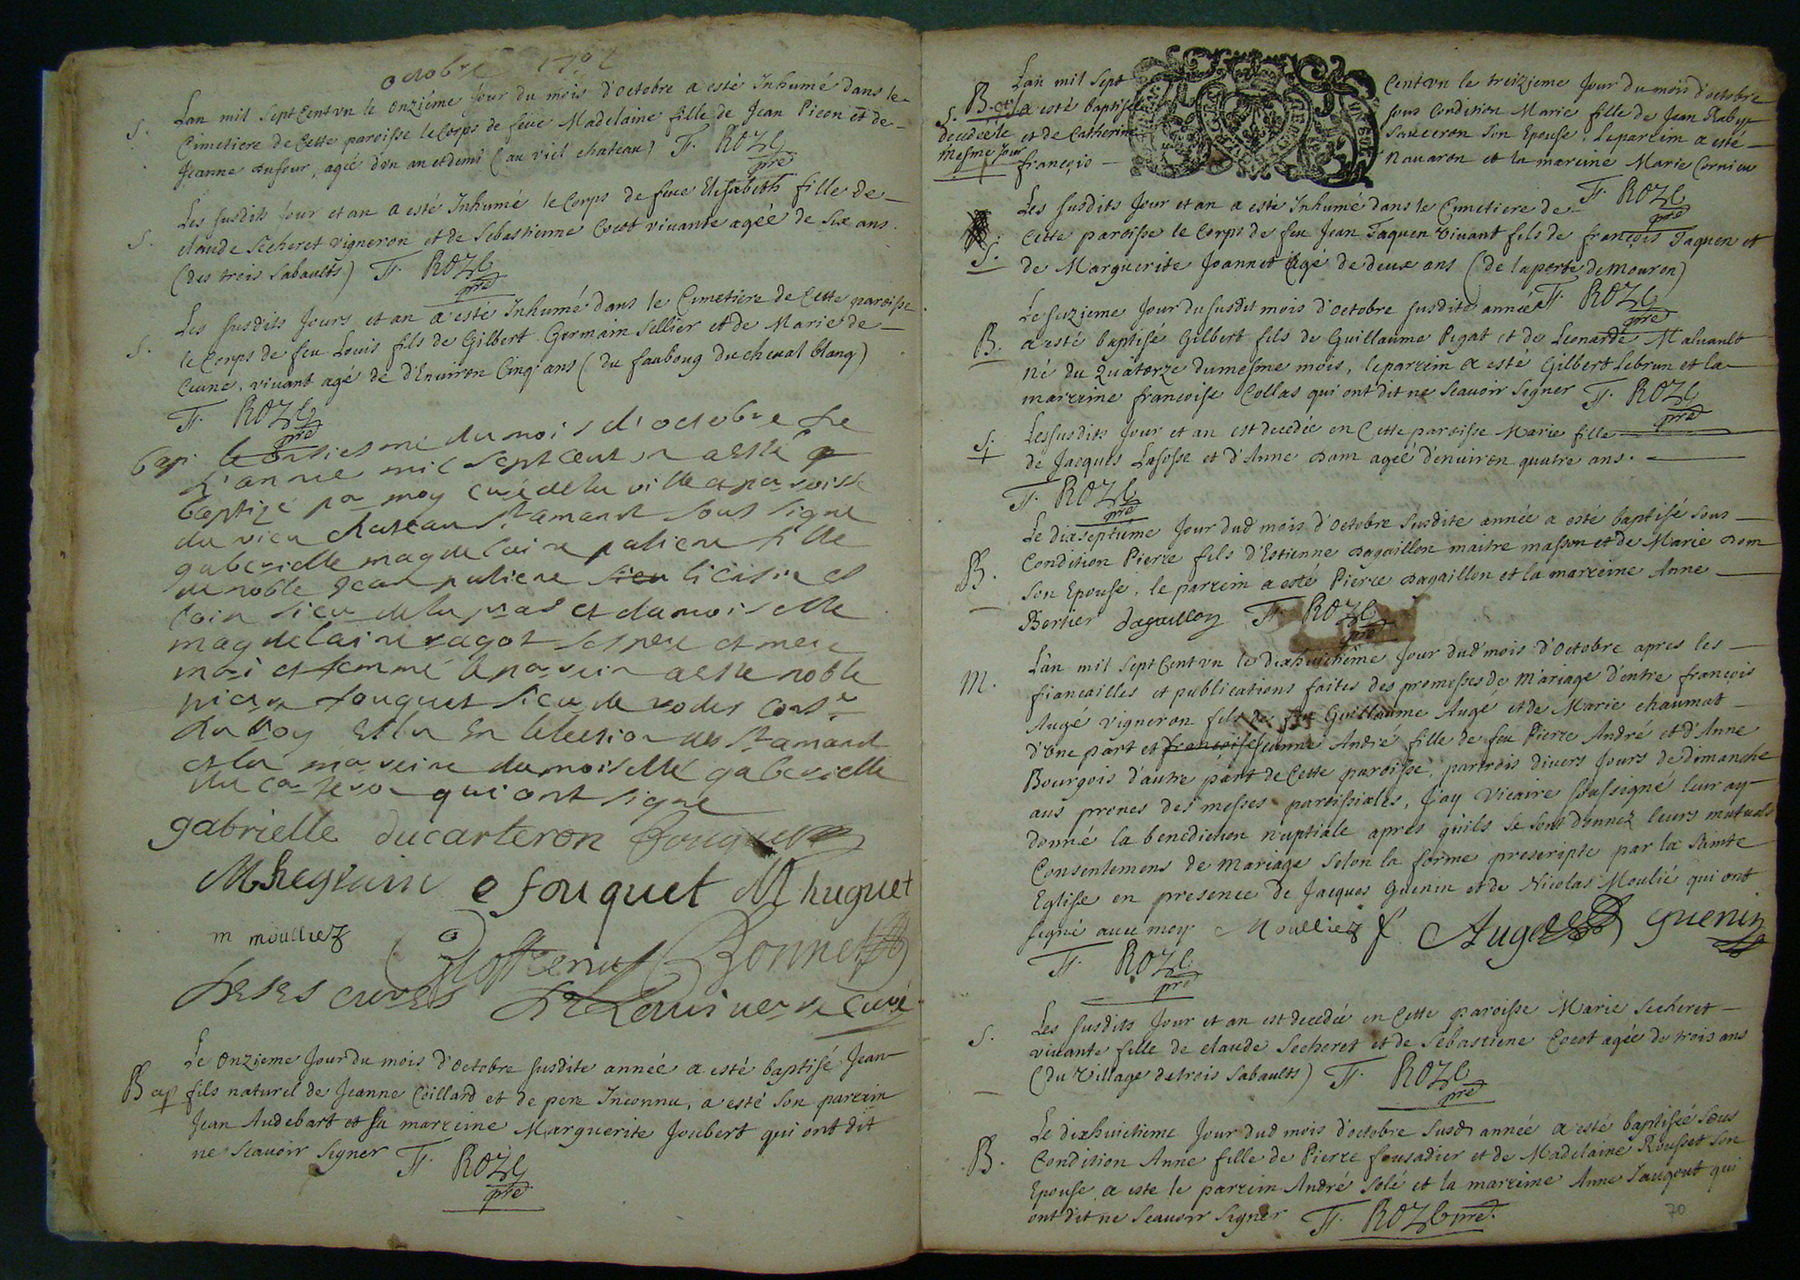 octobre 1701
Lan mil sept Cent vn le onziéme Jour du mois d'octobre a esté Inhumé dans le
S. Cimetiere de Cette paroisse le Corps de feue Madelaine fille de Jean Picon et de
Jeanne dufour, agée d'un an et demi (au viel chateau) F. ROZE pre
Les susdits Jour et an a esté Inhumé le Corps de feue Elisabeth fille de
S. claude Secheret vigneron et de Sebastienne Cocot vivante agée de Six ans
(des trois Sabaults) F. ROZE pre
Les susdits Jours et an a esté Inhumé dans le Cimetiere de Cette paroisse
S. le Corps de feu Louis fils de Gilbert Germain Sellier et de Marie de
vivant agé de d'Enuiron Cinq ans (du fauboug du cheual blanq)
F. ROZE pre
bap. le onsiesme du mois d'octobre de
l'annee mil sept cent vn a esté
baptizé par moy curé de la ville et paroisse
du vieu chateau St amand sous signe
gaberielle magdelaine paliene fille
de noble Jean paliene sieu licisie et
sieu de la et damoiselle
magdelaine ragot ses pere et mere
mari et femme le parein a este noble
fouquet sieu de rodes Conser
du roy eslu En lelection de St amand
et la mareine damoiselle gaberielle
du carteron qui ont signe
gabrielle ducarteron fouquet
Mhegrain e fouquet M huguet
m moulliez Bonnet
curé
Le onzieme Jour du mois d'octobre susdite année a esté baptisé Jean
Bap fils naturel de Jeanne Coillard et de pere Inconnu, a esté son parrein
Jean Audebart et sa marreine Marguerite Joubert qui ont dit
ne scauoir signer F. ROZE pre
Lan mil sept Cent vn le treizieme Jour du mois d'octobre
B. et S. a esté baptisée sous Condition Marie fille de Jean Raby
decedée le et de Catherine son Epouse, le parrein a esté
mesme Jour françois Nauaron et la mareine Marie Cornieu
F. ROZE pre
Les susdits Jour et an a esté Inhumé dans le Cimetiere de
S. Cette paroisse le Corps de feu Jean Taquen vivant fils de françois Taquen et
de Marguerite Joannet agé de deux ans (de la porte de mouron)
F. ROZE pre
Le sezieme Jour du susdit mois d'octobre susdite année
B. a esté baptisé Gilbert fils de Guillaume Pigat et de Leonarde Malvault
né du Quatorze du mesme mois, le parrein a esté Gilbert Lebrun et la
marreine francoise Collas qui ont dit ne scauoir signer F. ROZE pre
S. Les susdits Jour et an est decedée en Cette paroisse Marie fille
de Jacques Lafosse et d'Anne Dom agée d'enuiron quatre ans.
F. ROZE pre
Le dixseptiéme Jour dud mois d'octobre susdite année a esté baptisé sous
B. Condition Pierre fils d'Estienne Dagaillon maitre masson et de Marie Dom
son Epouse, le parrein a esté Pierre Dagaillon et la marreine Anne
Bertier dagaillon F. ROZE pre
L'an mil sept Cent vn le dixhuictième Jour dud mois d'octobre apres les
M. fiancailles et publications faites des promesses de Mariage d'entre françois
Augé vigneron fils de feu Guillaume Augé et de Marie chaumat
d'une part et francoise Jeanne André fille de feu Pierre André et d'Anne
Bourgois d'autre part de Cette paroisse, par trois divers Jours de dimanche
aux prones des messes paroissiales, J'ay Vicaire soussigné leur ay
donné la benediction nuptiale apres qu'ils se sont donnez leurs mutuels
Consentemens de mariage selon la forme prescripte par la Sainte
Eglise en presence de Jacques Guenin et de Nicolas Moulié qui ont
signé auec moy. Moulliez f. Auge guenin
F. ROZE pre
S. Les susdits Jour et an est decedée en Cette paroisse Marie Secheret
vivante fille de claude Secheret et de Sebastiene Cocot agée de trois ans
(du Village de trois Sabaults) F. ROZE pre
Le dixhuictieme Jour dud mois d'octobre susd année a esté baptisée sous
B. Condition Anne fille de Pierre fousadier et de Madelaine Rousset son
Epouse a este le parrein André Solé et la marreine Anne Saugout qui
ont dit ne scauoir signer F. ROZE pre.
70